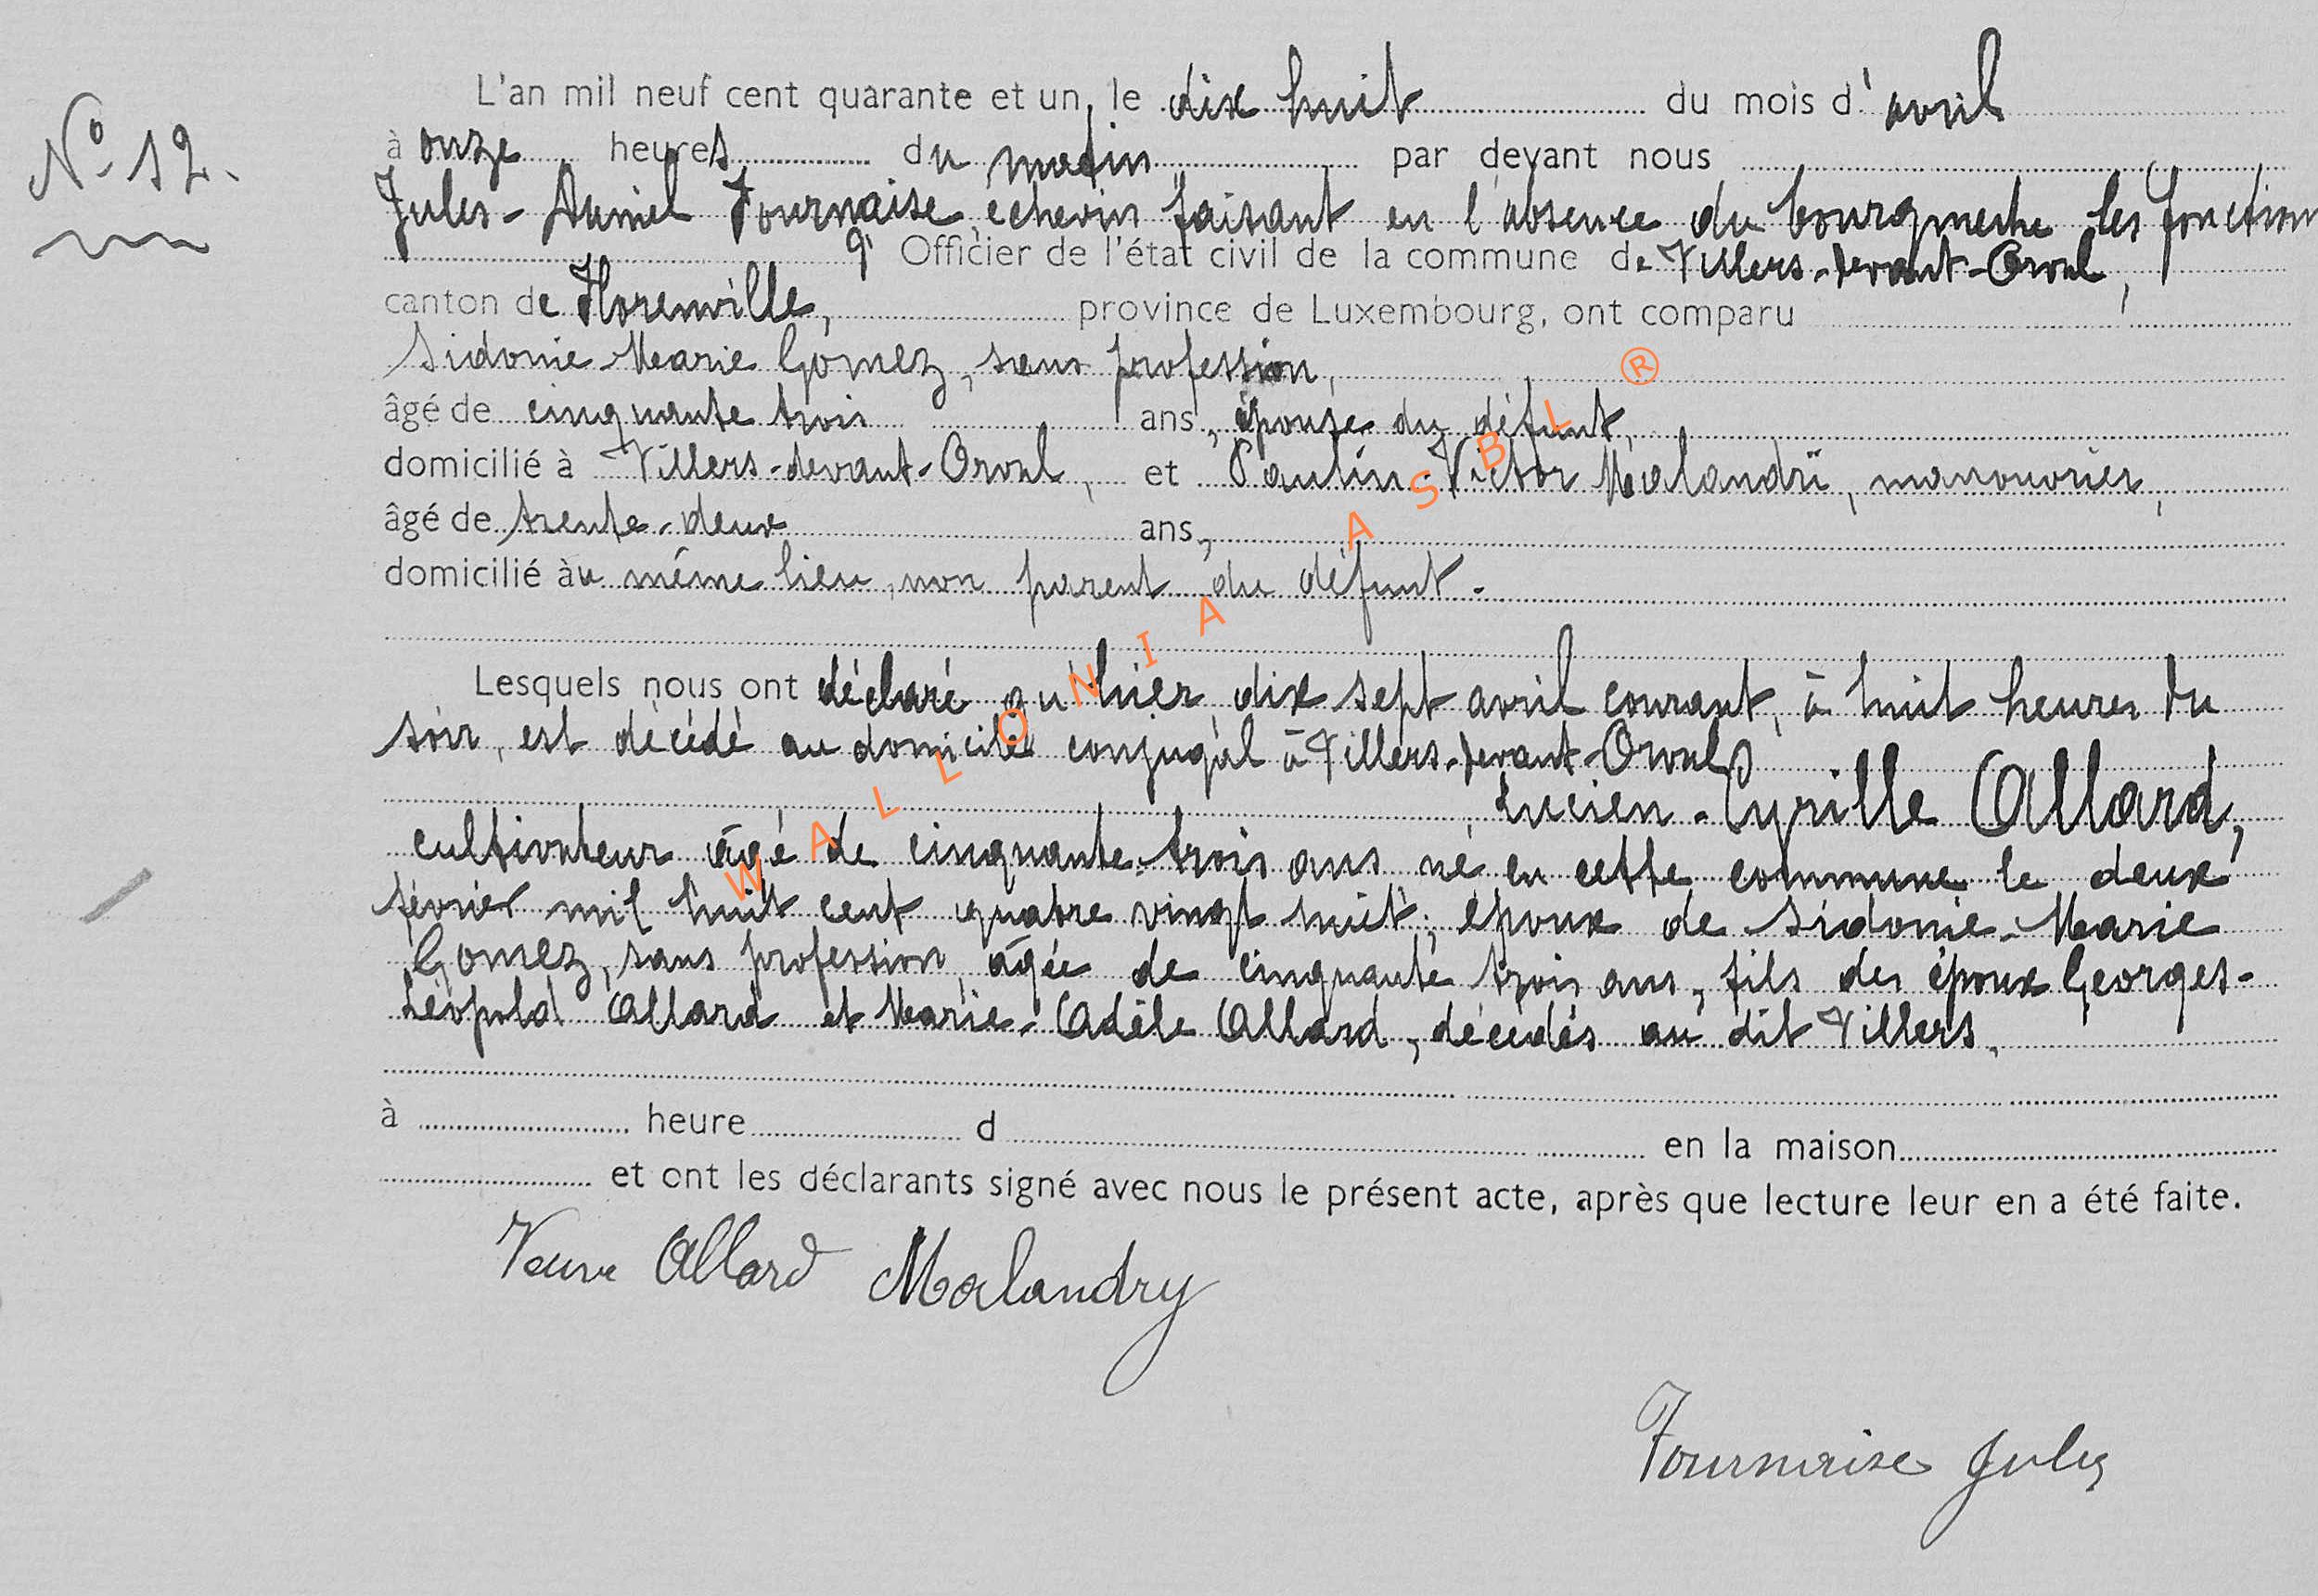 N° 12.
L'an mil neuf cent quarante et un, le dix huit du mois d'avril
à onze heures du matin par devant nous
Jules-Daniel Fournaise, échevin faisant en l'absence du bourgmestre les fonctions
d' Officier de l'état civil de la commune de Villers-devant-Orval,
canton de Florenville, province de Luxembourg, ont comparu
Sidonie-Marie Gomez, sans profession,
âgé de cinquante trois ans, épouse du défunt,
domicilié à Villers-devant-Orval, et Paulin-Victor Malandrï, manouvrier,
âgé de trente-deux ans,
domicilié au même lieu, non parent du défunt.
Lesquels nous ont déclaré qu'hier, dix sept avril courant, à huit heures du
soir, est décédé au domicile conjugal à Villers-devant-Orval
Lucien-Cyrille Allard,
cultivateur âgé de cinquante-trois ans né en cette commune le deux
février mil huit cent quatre vingt huit, époux de Sidonie-Marie
Gomez, sans profession, âgée de cinquante trois ans, fils des époux Georges-
Léopold Allard et Marie-Adèle Allard, décédés au dit Villers.
à heure d en la maison
et ont les déclarants signé avec nous le présent acte, après que lecture leur en a été faite.
Veuve Allard Malandry
Fournaise Jules
WALLONIA ASBL ®